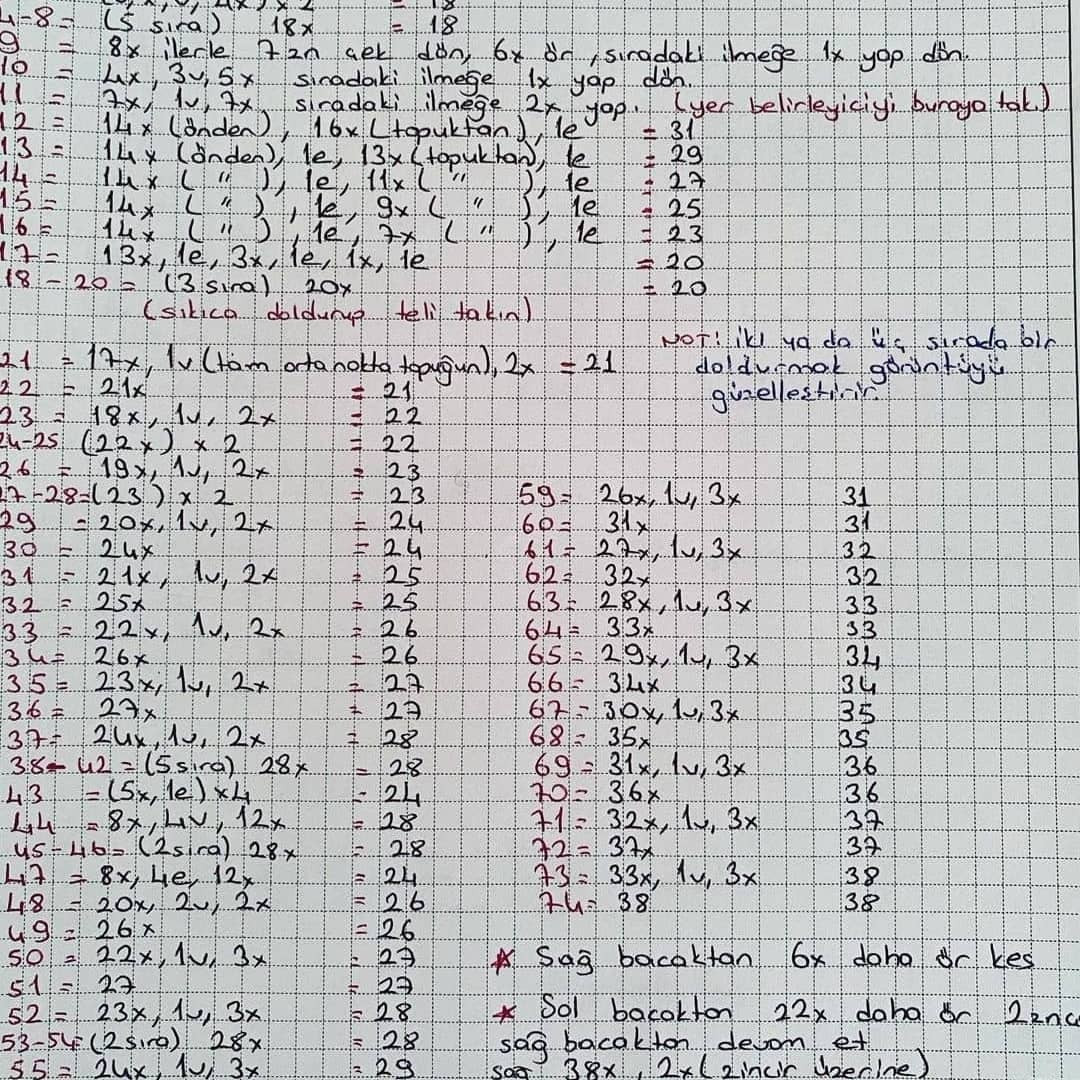 4-8= (5 sıra) 18x = 18
9 = 8x ilerle 7zn çek dön, 6x ör, sıradaki ilmeğe 1x yap dön.
10 = 4x, 3v, 5x sıradaki ilmeğe 1x yap dön.
11 = 7x, 1v, 7x, sıradaki ilmeğe 2x yap. (yer belirleyiciyi buraya tak.)
12 = 14x (önden), 16x (topuktan), 1e = 31
13 = 14x (önden), 1e, 13x (topuktan), 1e = 29
14 = 14x ( " ), 1e, 11x ( " ), 1e = 27
15 = 14x ( " ), 1e, 9x ( " ), 1e = 25
16 = 14x ( " ), 1e, 7x ( " ), 1e = 23
17 = 13x, 1e, 3x, 1e, 1x, 1e = 20
18-20= (3 sıra) 20x = 20
(sıkıca doldurup teli takın)
NOT! iki ya da üç sırada bir
doldurmak görüntüyü
güzelleştirir.
21 = 17x, 1v (tam orta nokta topuğun), 2x = 21
22 = 21x = 21
23 = 18x, 1v, 2x = 22
24-25 (22x) x 2 = 22
26 = 19x, 1v, 2x = 23
27-28=(23) x 2 = 23
29 = 20x, 1v, 2x = 24
30 = 24x = 24
31 = 21x, 1v, 2x = 25
32 = 25x = 25
33 = 22x, 1v, 2x = 26
34= 26x = 26
35= 23x, 1v, 2x = 27
36= 27x = 27
37= 24x, 1v, 2x = 28
38-42=(5sıra) 28x = 28
43 =(5x, 1e)x4 = 24
44 =8x, 4v, 12x = 28
45-46=(2sıra) 28x = 28
47 = 8x, 4e, 12x = 24
48 = 20x, 2v, 2x = 26
49 = 26x = 26
50 = 22x, 1v, 3x = 27
51 = 27 = 27
52 = 23x, 1v, 3x = 28
53-54=(2sıra) 28x = 28
55 = 24x, 1v, 3x = 29
59= 26x, 1v, 3x 31
60= 31x 31
61= 27x, 1v, 3x 32
62= 32x 32
63= 28x, 1v, 3x 33
64= 33x 33
65= 29x, 1v, 3x 34
66= 34x 34
67= 30x, 1v, 3x 35
68= 35x 35
69= 31x, 1v, 3x 36
70= 36x 36
71= 32x, 1v, 3x 37
72= 37x 37
73= 33x, 1v, 3x 38
74= 38 38
* Sağ bacaktan 6x daha ör kes
* Sol bacaktan 22x daha ör 2zinc
sağ bacaktan devam et
sağ 38x, 2x (zincir üzerine)